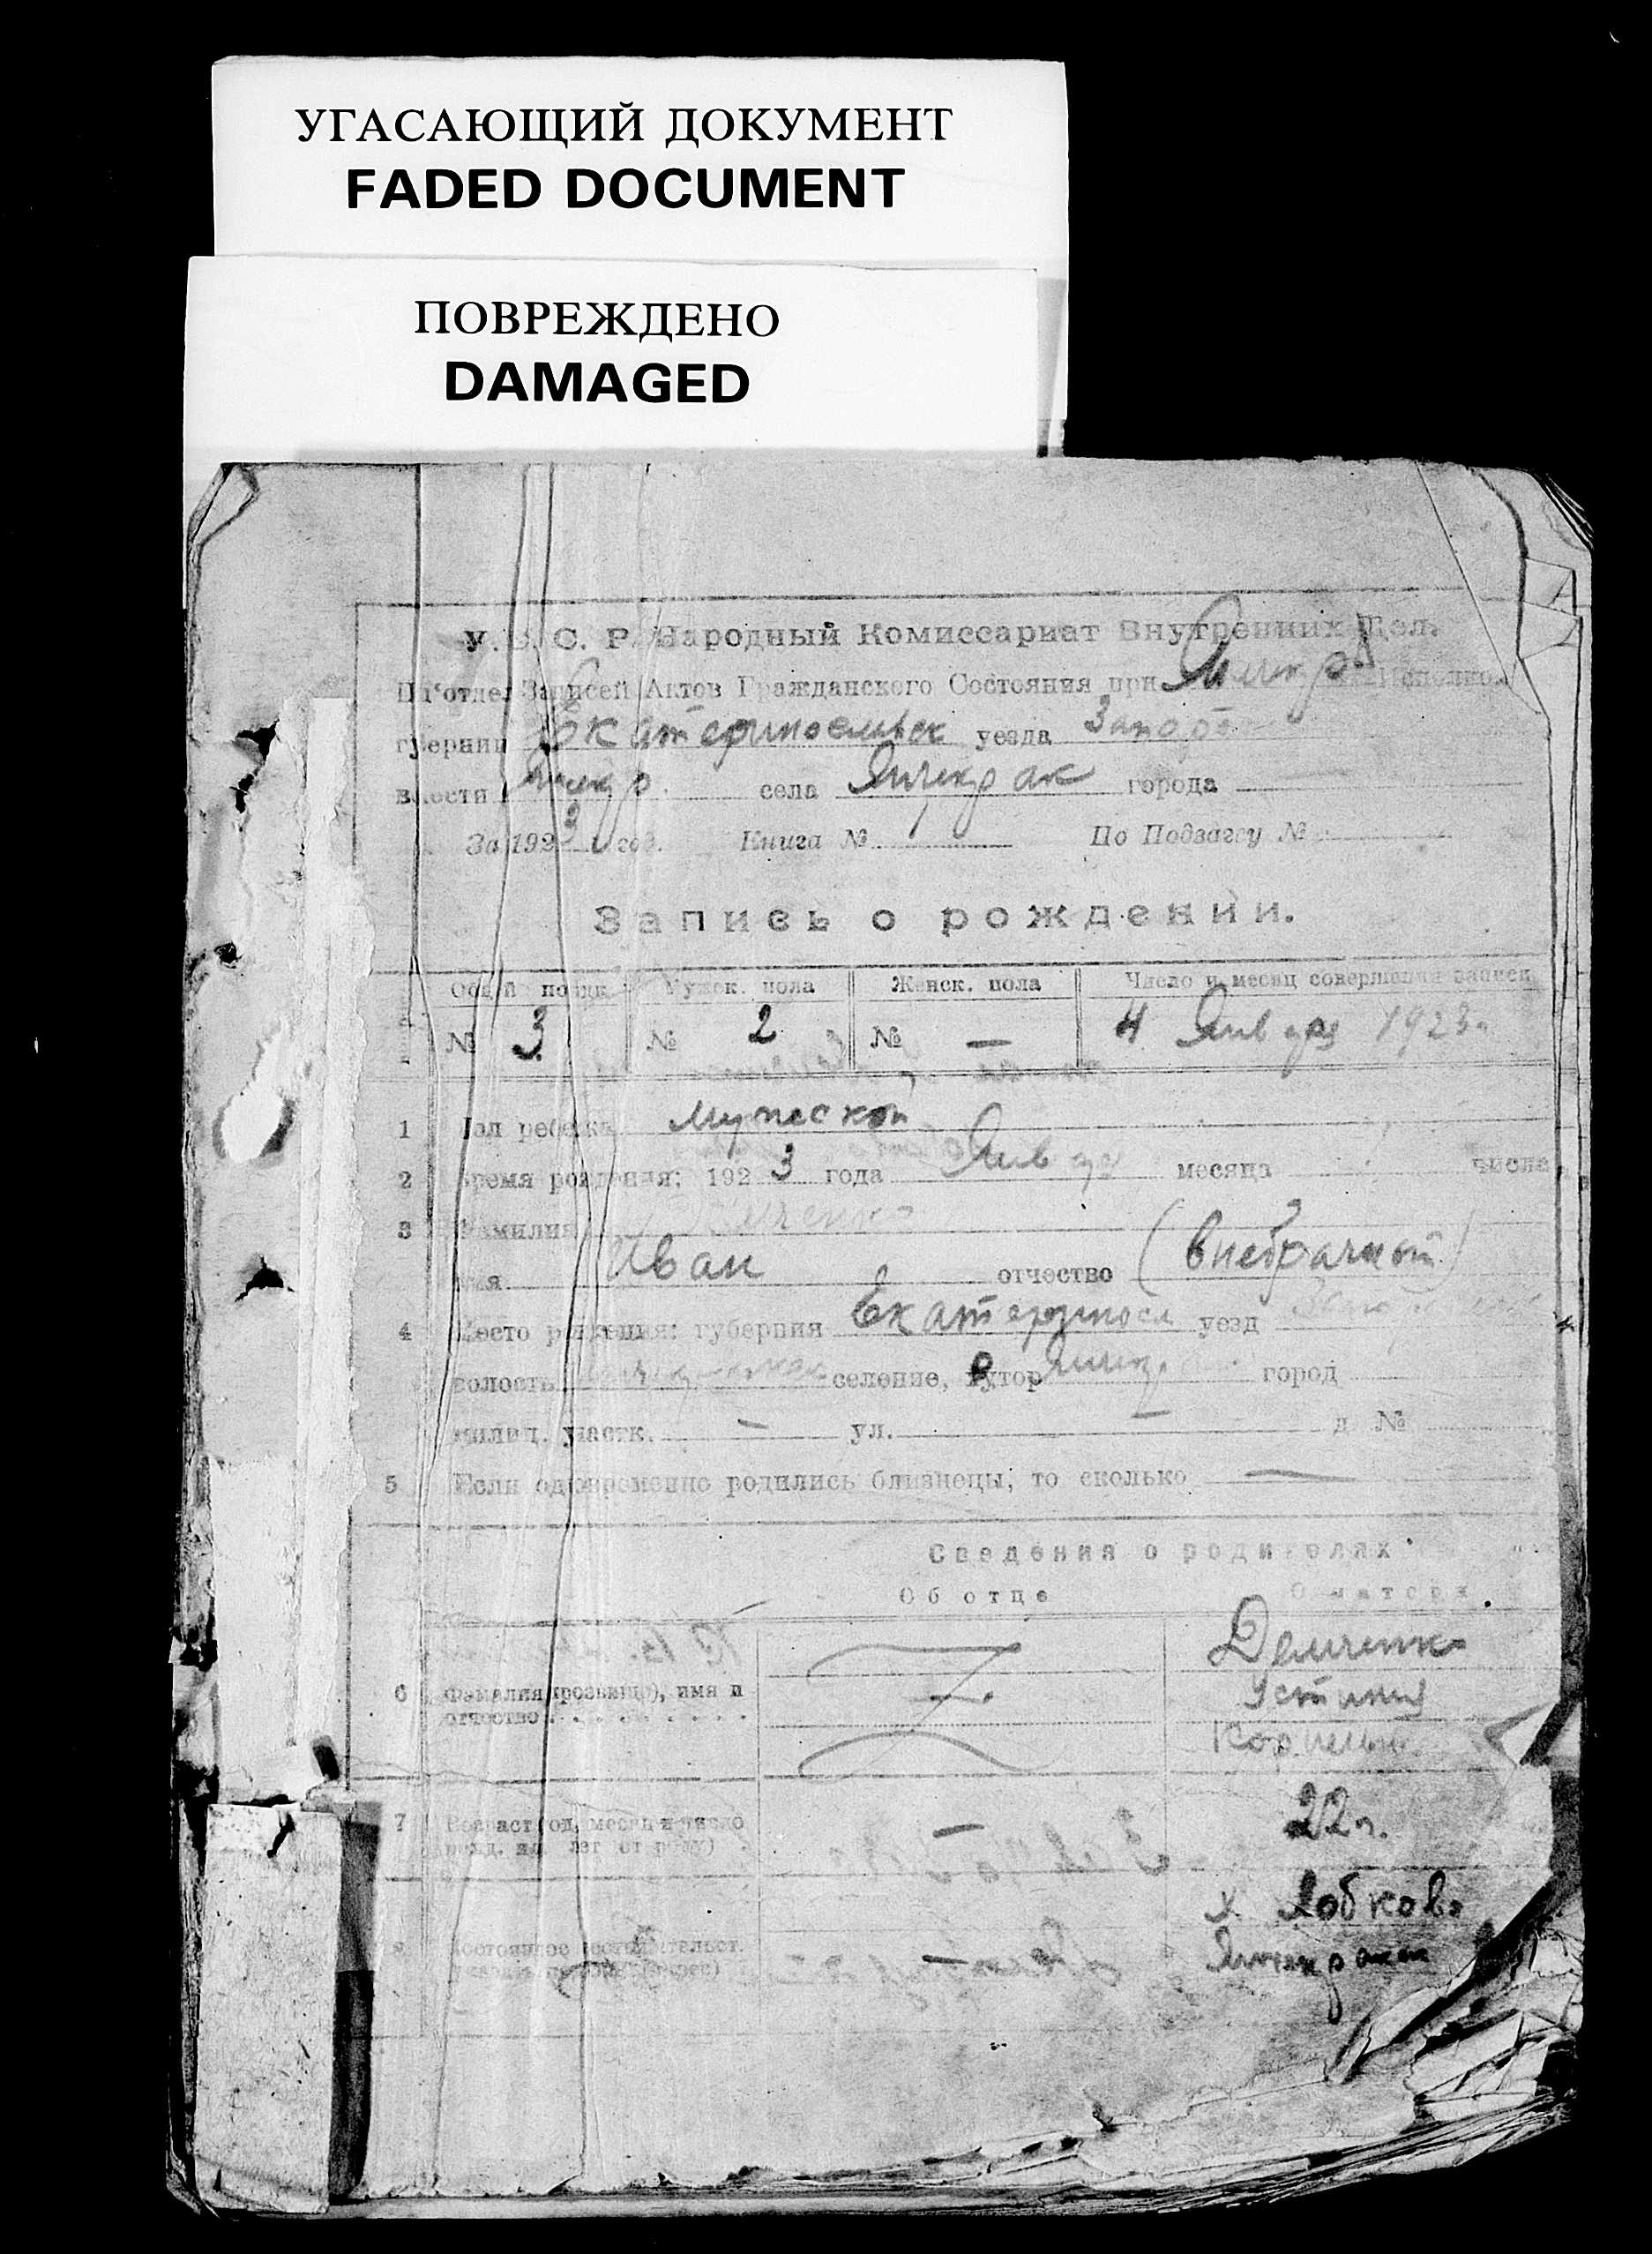 УГАСАЮЩИЙ ДОКУМЕНТ
FADED DOCUMENT
ПОВРЕЖДЕНО
DAMAGED
У. С. С. Р. Народный Комиссариат Внутренних Дел.
Подотдел Записей Актов Гражданского Состояния при Янчекр. Исполком
губернии Екатеринославск уезда Запор
волости Янчекр. села Янчекрак города
За 1923 год. Книга № По Подзагсу №
Запись о рождении.
Общий поряд. Мужск. пола Женск. пола Число и месяц совершения записи
№ 3 № 2 № — 4 Января 1923г.
1 Пол ребенка мужеской
2 Время рождения: 1923 года Января месяца числа
3 Фамилия Демченко
имя Иван отчество (внебрачный)
4 Место рождения: губерния Екатеринося уезд
волость селение, хутор Янчекр город
милиц. участк. — ул. — д №
5 Если одновременно родились близнецы, то сколько —
Сведения о родителях
Об отце О матери
Демченко
6 Фамилия (прозвище), имя и Устиния
отчество Корнеевн.
7 Возраст (год, месяц и число — 22 г.
рожд. или лет от роду)
х. Лобково
8 Постоянное местожительст. — Янчекракск